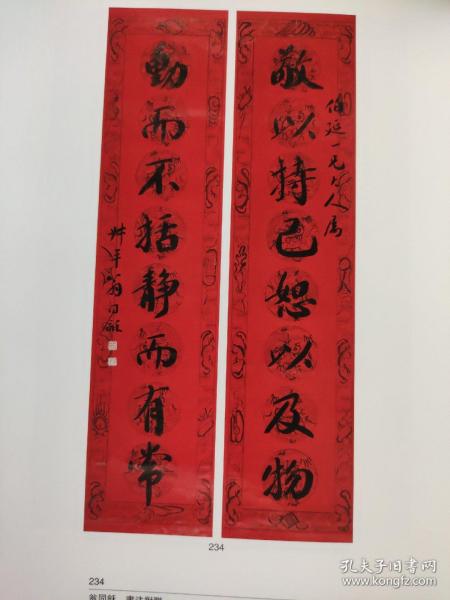 敬以持己恕以及物
伯延一兄大人属
動而不括静而有常
叔平翁同龢
234
234
翁同龢 書法對聯
孔夫子旧书网